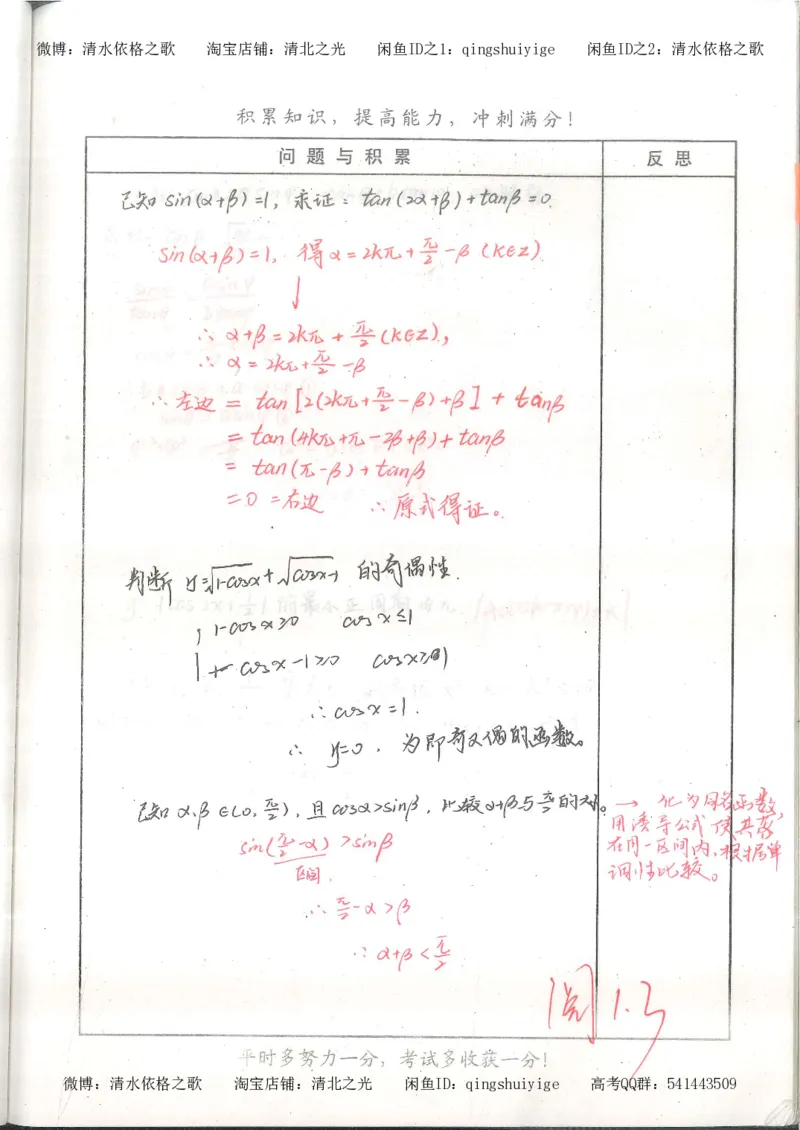 微博：清水依格之歌 淘宝店铺：清北之光 闲鱼ID之1：qingshuiyige 闲鱼ID之2：清水依格之歌
积累知识，提高能力，冲刺满分！
问题与积累 反思
已知 sin(α+β)=1，求证：tan(2α+β)+tanβ=0.
sin(α+β)=1，得α=2kπ+π/2-β (k∈Z)
↓
∴ α+β=2kπ+π/2 (k∈Z),
∴ α=2kπ+π/2-β
∴ 左边 = tan[2(2kπ+π/2-β)+β]+tanβ
= tan(4kπ+π-2β+β)+tanβ
= tan(π-β)+tanβ
=0 =右边 ∴原式得证。
判断 y=√1-cosx+√cosx-1 的奇偶性.
1-cosx≥0 cosx≤1
cosx-1≥0 cosx≥1
∴ cosx=1.
∴ y=0，为即奇又偶的函数。
已知 α,β∈(0,π/2)，且 cosα>sinβ，比较α+β与π/2的大小。
→ 化为同名函数,
用诱导公式使其落
在同一区间内,根据单
调性比较。
sin(π/2-α)>sinβ
区间.
∴ π/2-α>β
∴ α+β<π/2
阅 1.3
平时多努力一分，考试多收获一分！
微博：清水依格之歌 淘宝店铺：清北之光 闲鱼ID：qingshuiyige 高考QQ群：541443509